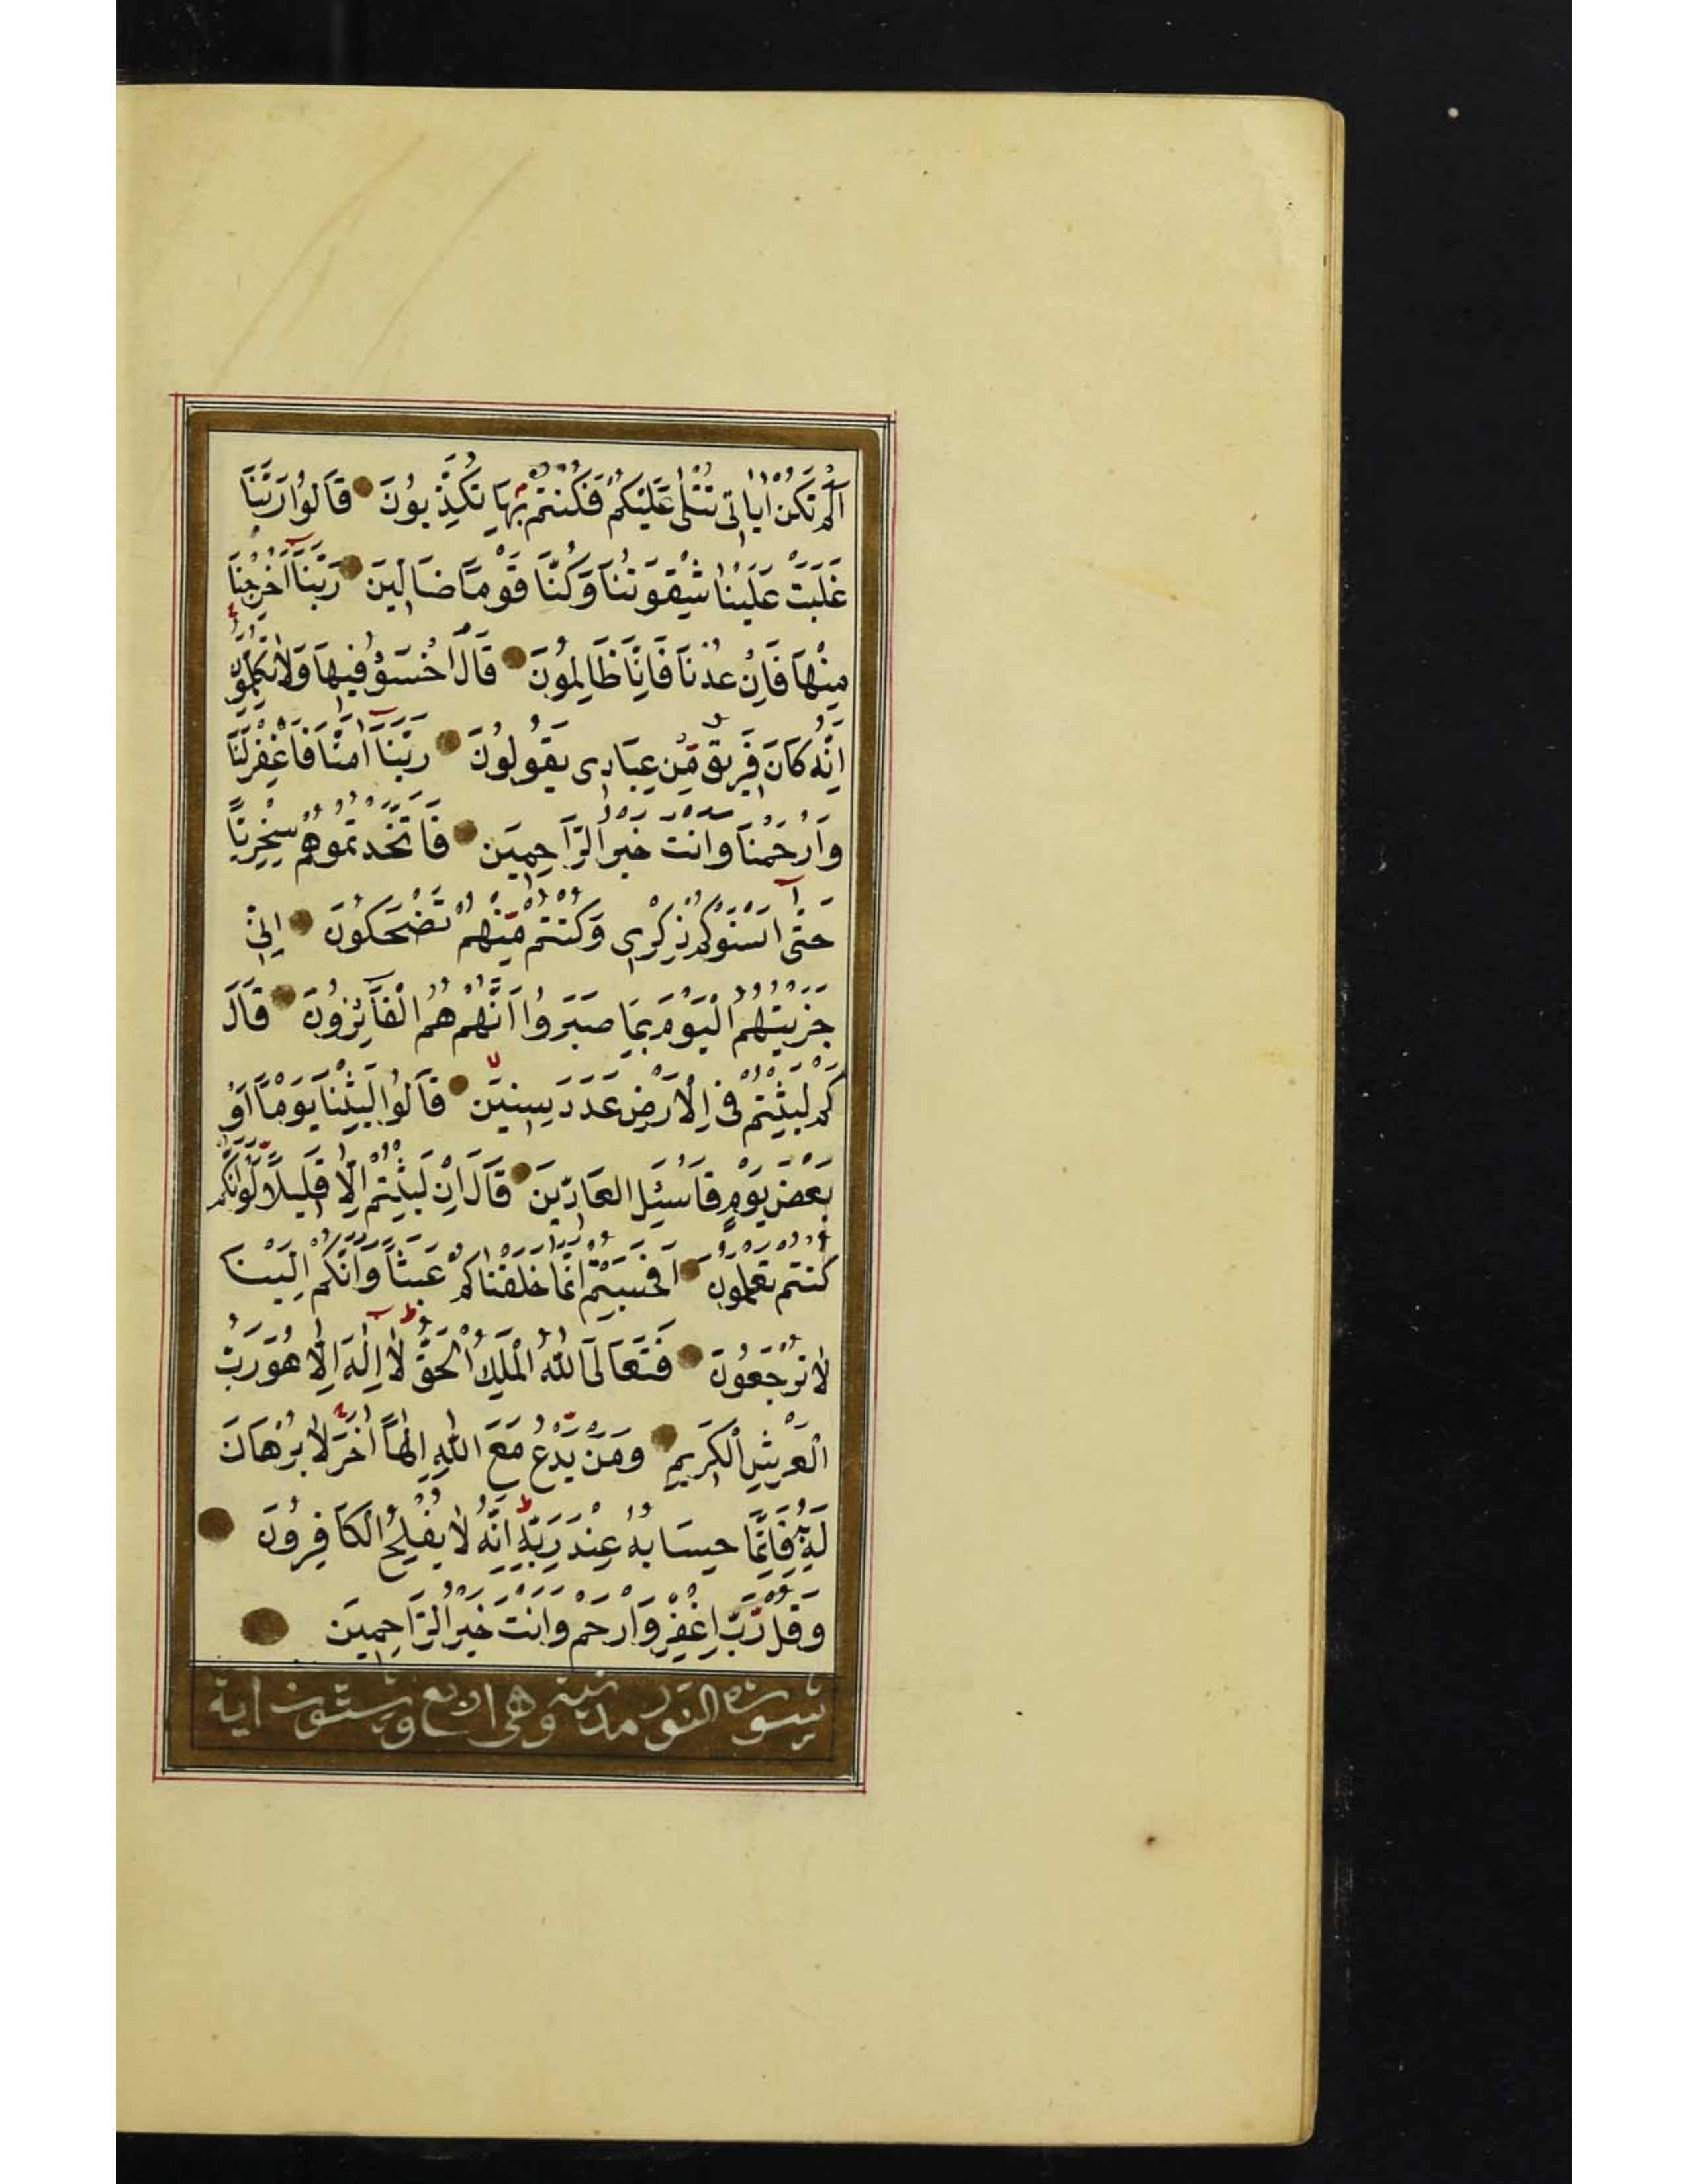 اَلَمْ تَكُنْ اٰيَاتِى تُتْلٰى عَلَيْكُمْ فَكُنْتُمْ بِهَا تُكَذِّبُونَ قَالُوا رَبَّنَا
غَلَبَتْ عَلَيْنَا شِقْوَتُنَا وَكُنَّا قَوْمًا ضَالِّينَ رَبَّنَا اَخْرِجْنَا
مِنْهَا فَاِنْ عُدْنَا فَاِنَّا ظَالِمُونَ قَالَ اخْسَؤُا فِيهَا وَلَا تُكَلِّمُونِ
اِنَّهُ كَانَ فَرِيقٌ مِّنْ عِبَادِى يَقُولُونَ رَبَّنَا اٰمَنَّا فَاغْفِرْ لَنَا
وَارْحَمْنَا وَاَنْتَ خَيْرُ الرَّاحِمِينَ فَاتَّخَذْتُمُوهُمْ سِخْرِيًّا
حَتّٰى اَنْسَوْكُمْ ذِكْرِى وَكُنْتُمْ مِّنْهُمْ تَضْحَكُونَ اِنِّى
جَزَيْتُهُمُ الْيَوْمَ بِمَا صَبَرُوا اَنَّهُمْ هُمُ الْفَآئِزُونَ قَالَ
كَمْ لَبِثْتُمْ فِى الْاَرْضِ عَدَدَ سِنِينَ قَالُوا لَبِثْنَا يَوْمًا اَوْ
بَعْضَ يَوْمٍ فَاسْئَلِ الْعَادِّينَ قَالَ اِنْ لَبِثْتُمْ اِلَّا قَلِيلًا لَوْ اَنَّكُمْ
كُنْتُمْ تَعْلَمُونَ اَفَحَسِبْتُمْ اَنَّمَا خَلَقْنَاكُمْ عَبَثًا وَاَنَّكُمْ اِلَيْنَا
لَا تُرْجَعُونَ فَتَعَالَى اللّٰهُ الْمَلِكُ الْحَقُّ لَا اِلٰهَ اِلَّا هُوَ رَبُّ
الْعَرْشِ الْكَرِيمِ وَمَنْ يَدْعُ مَعَ اللّٰهِ اِلٰهًا اٰخَرَ لَا بُرْهَانَ
لَهُ بِهِ فَاِنَّمَا حِسَابُهُ عِنْدَ رَبِّهِ اِنَّهُ لَا يُفْلِحُ الْكَافِرُونَ
وَقُلْ رَّبِّ اغْفِرْ وَارْحَمْ وَاَنْتَ خَيْرُ الرَّاحِمِينَ
سورة النور مدنية وهى اربع وستون اية